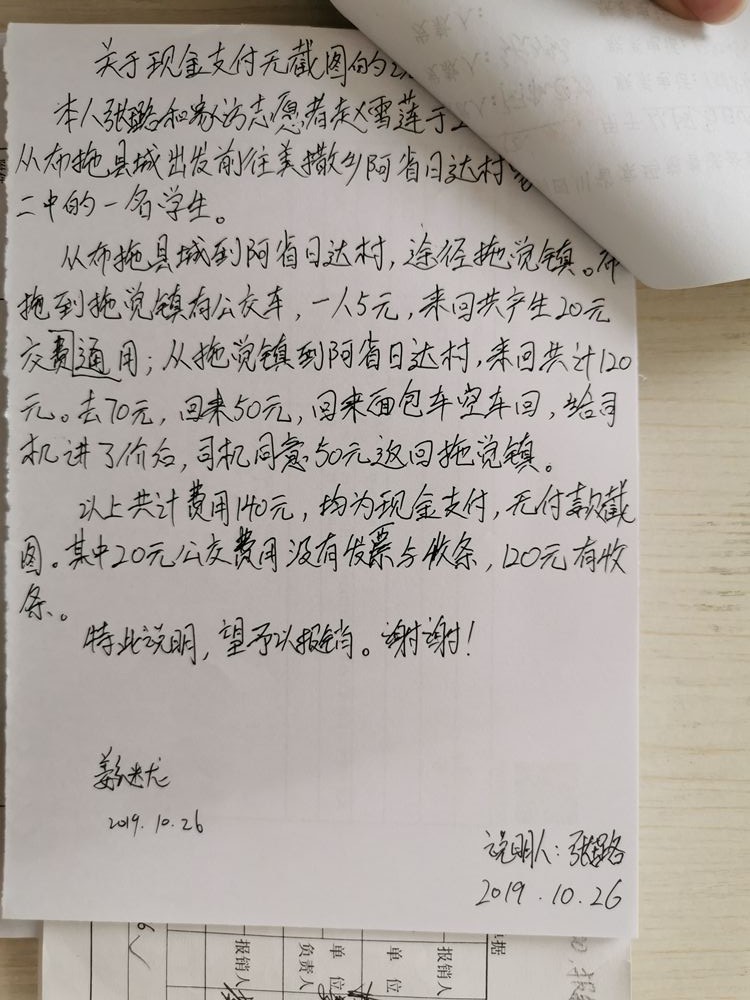 关于现金支付无截图的
本人张璐和家访志愿者赵雪莲于
从布拖县城出发前往美撒乡阿省日达村
二中的一名学生。
从布拖县城到阿省日达村，途径拖觉镇。布
拖到拖觉镇有公交车，一人5元，来回共产生20元
交通费用；从拖觉镇到阿省日达村，来回共计120
元。去70元，回来50元，回来面包车空车回，给司
机讲了价后，司机同意50元返回拖觉镇。
以上共计费用140元，均为现金支付，无付款截
图。其中20元公交费用没有发票与收条，120元有收
条。
特此说明，望予以报销。谢谢！
2019.10.26
说明人：张璐
2019.10.26
据
报销人
单位
单位
负责人
报销人